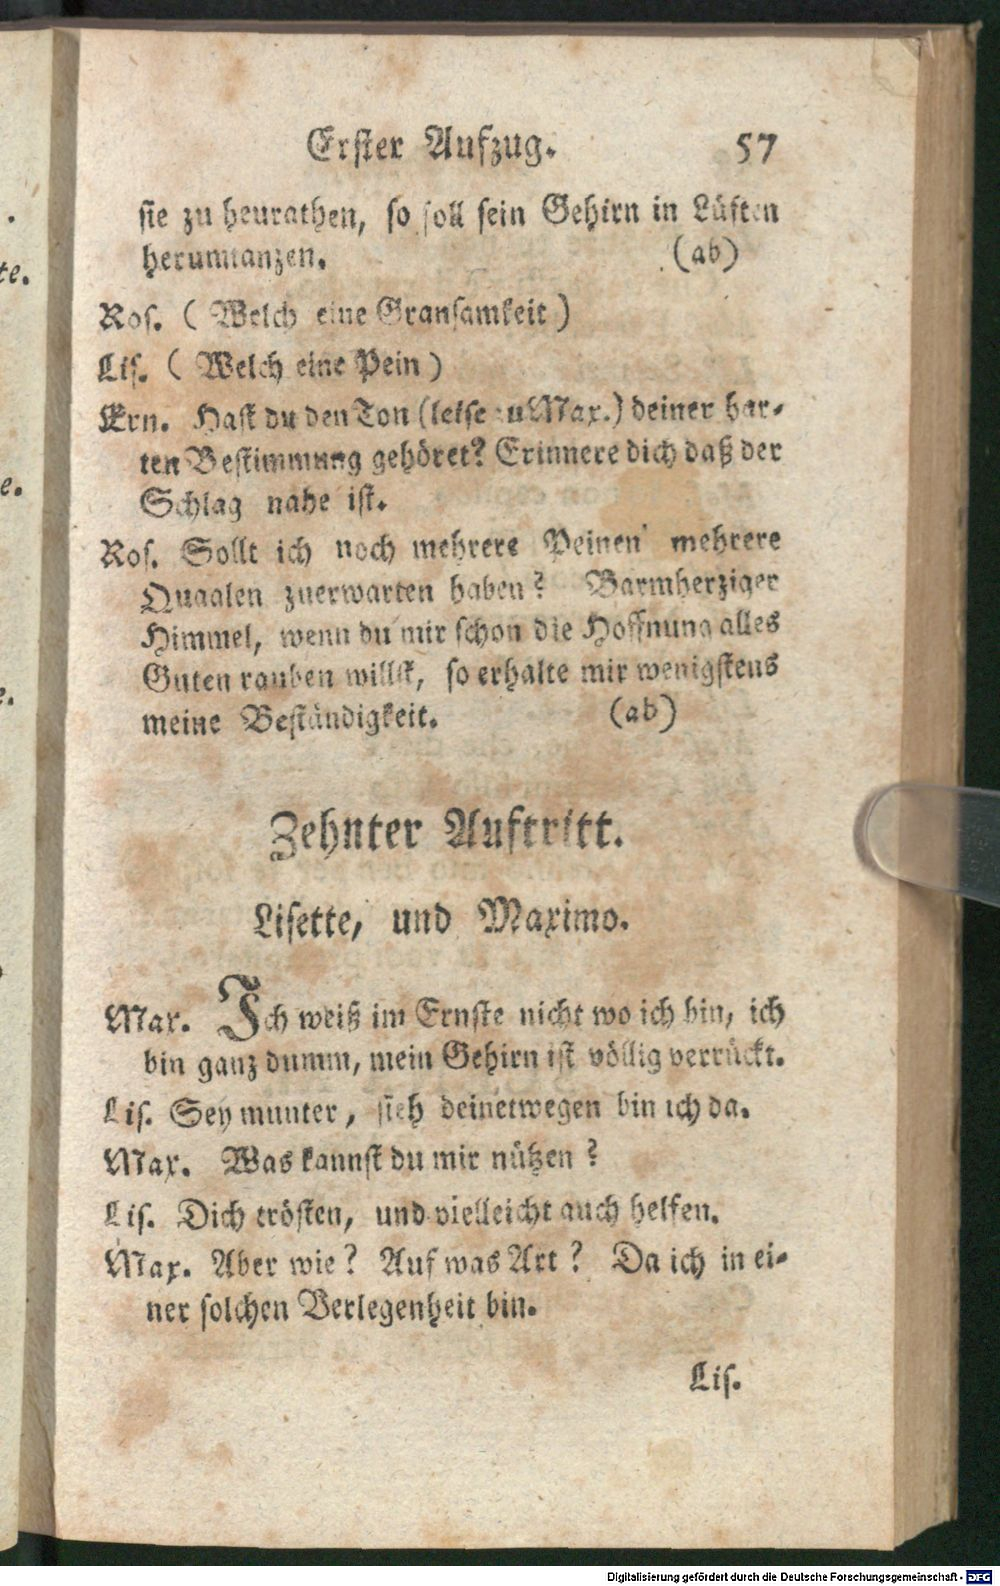 Erster Aufzug. 57
sie zu heurathen, so soll sein Gehirn in Lüften
herumtanzen. (ab)
Ros. (Welch eine Gransamkeit)
Lis. (Welch eine Pein)
Ern. Hast du den Ton (leise zu Max.) deiner har-
ten Bestimmung gehöret? Erinnere dich daß der
Schlag nahe ist.
Ros. Sollt ich noch mehrere Peinen mehrere
Quaalen zuerwarten haben? Barmherziger
Himmel, wenn du mir schon die Hoffnung alles
Guten rauben willst, so erhalte mir wenigstens
meine Beständigkeit. (ab)
Zehnter Auftritt.
Lisette, und Maximo.
Max. Ich weiß im Ernste nicht wo ich bin, ich
bin ganz dumm, mein Gehirn ist völlig verrückt.
Lis. Sey munter, sieh deinetwegen bin ich da.
Max. Was kannst du mir nützen?
Lis. Dich trösten, und vielleicht auch helfen.
Max. Aber wie? Auf was Art? Da ich in ei-
ner solchen Verlegenheit bin.
Lis.
te.
e.
e.
Digitalisierung gefördert durch die Deutsche Forschungsgemeinschaft - DFG